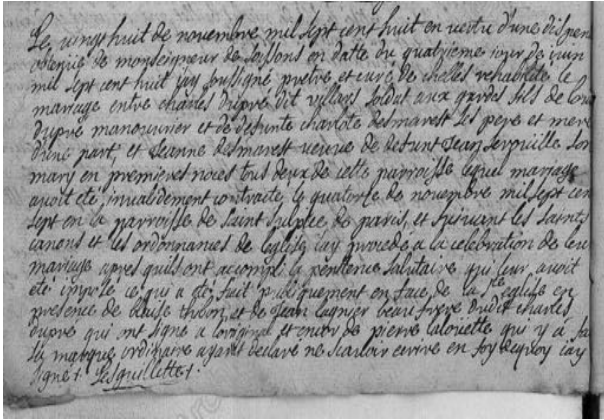 Le vingt huit de novembre mil sept cent huit en vertu d'une dispen
obtenue de monseigneur de soissons en datte du quatrieme jour de juin
mil sept cent huit jay soussigné pretre et curé de chelles rehabilité le
mariage entre charles dupré dit soldat aux gardes fils de
dupré manouvrier et de defunte charlote desmarest ses pere et mere
d'une part, et Jeanne desmarest veuve de defunt Jean son
mary en premieres noces tous deux de cette parroisse lequel mariage
avoit eté invalidement contracté le quatorze de novembre mil sept cen
sept en la parroisse de saint sulpice de paris, et suivant les saints
canons et les ordonnances de leglise jay procedé a la celebration de leur
mariage apres quils ont accompli la penitence salutaire qui leur avoit
eté imposé ce qui a eté fait publiquement en face de la ste eglise en
presence de blaise et de Jean beau frere dudit charles
dupré qui ont signé a loriginal et encor de pierre lalouette qui y a fa
sa marque ordinaire ayant declaré ne scavoir ecrire en foy dequoy jay
signé. Lesguillette